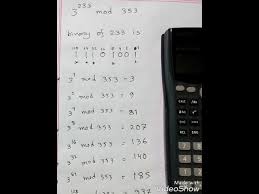 3²³³ mod 353
binary of 233 is:
1 1 1 0 1 0 0 1
3¹ mod 353 = 3
3² mod 353 = 9
3⁴ mod 353 = 81
3⁸ mod 353 = 207
3¹⁶ mod 353 = 136
3³² mod 353 = 140
3⁶⁴ mod 353 = 185
Made with
VideoShow